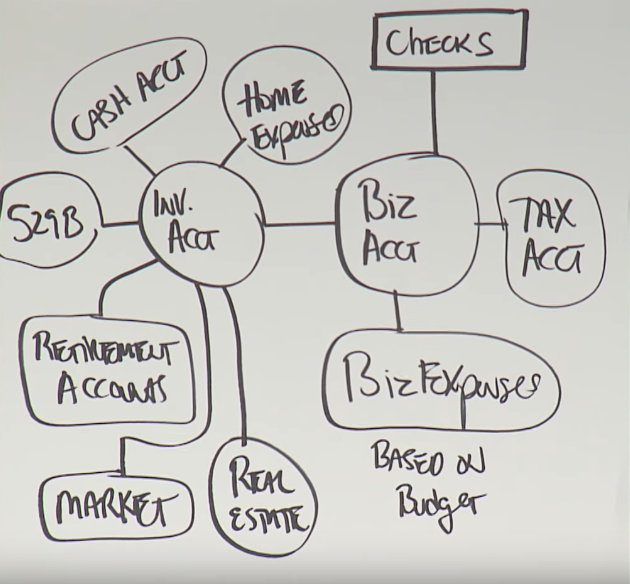 CHECKS
CASH ACCT
HOME
Expenses
529B
INV.
ACCT
Biz
ACCT
TAX
ACCT
RETIREMENT
ACCOUNTS
Biz Expenses
BASED ON
Budget
MARKET
REAL
ESTATE